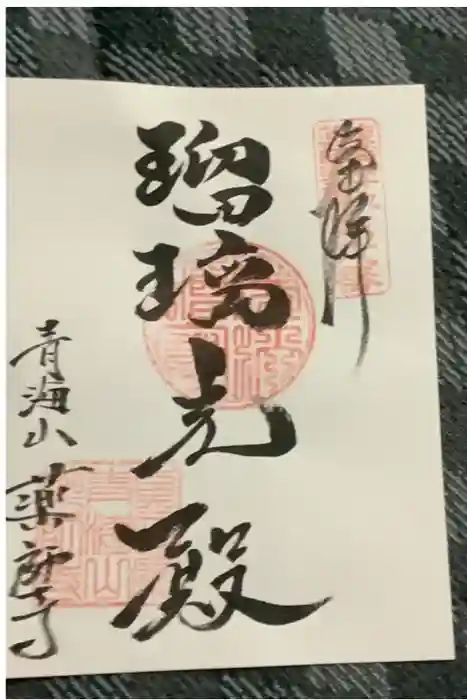 奉拝
瑠璃光殿
青海山 薬師寺